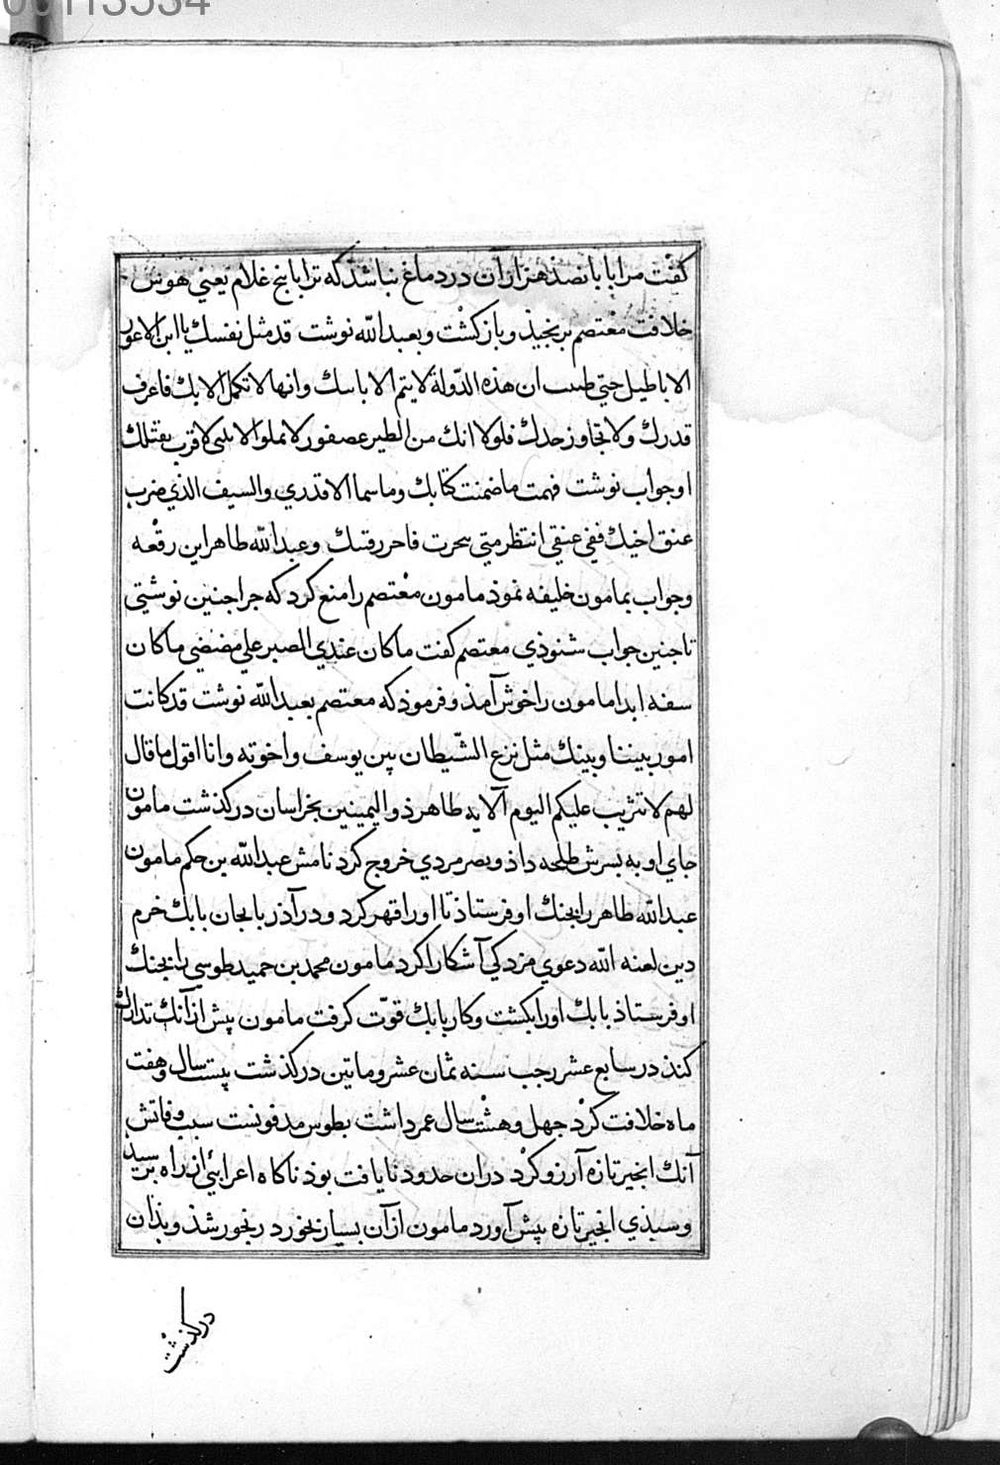 00113534
كفت مرا با بانصذ هزار آن در دماغ نباشذ كه ترا با پنج غلام يعني هوس
خلافت معتصم برنجيذ و باز كشت و بعبد الله نوشت قد مثل نفسك يا ابن الاعور
الاباطيل حتي ظننت ان هذه الدولة لا يتم الا باسك وانها لا تكمل الا بك فاعرف
قدرك ولا تجاوز حدك فلولا انك من الطير عصفور
او جواب نوشت فهمت ما ضمنت كتابك وما سما الا قدري والسيف الذي ضرب
عنق اخيك ففي عنقي انتظر متي وعبد الله طاهر اين رقعه
وجواب بمامون خليفه نموذ مامون معتصم را منع كرد كه جرا جنين نوشتي
تا جنين جواب شنوذي معتصم كفت ما كان عندي الصبر علي مضضي ما كان
سفه ابدا مامون را خوش آمذ و فرموذ كه معتصم بعبد الله نوشت قد كانت
امور بيننا وبينك مثل نزع الشيطان بين يوسف واخوته وانا اقول ما قال
لهم لا تثريب عليكم اليوم الايه طاهر ذو اليمينين بخراسان در كذشت مامون
جاي او به بسرش طلحه داذ و بصر مردي خروج كرد نامش عبد الله بن حكم مامون
عبد الله طاهر را بجنك او فرستاذ تا او را قهر كرد و در آذربايجان بابك خرم
دين لعنه الله دعوي مزدكي آشكارا كرد مامون محمد بن حميد طوسي را بجنك
او فرستاذ بابك او را بكشت و كار بابك قوّت كرفت مامون پيش از آنك تدارك
كنذ در سابع عشر رجب سنه ثمان عشر وماتين در كذشت بيست سال و هفت
ماه خلافت كرد جهل و هشت سال عمر داشت بطوس مدفونست سبب وفاتش
آنك انجير تازه آرزو كرد در ان حدود نايافت بوذ ناكاه اعرابئي از راه برسيذ
و سبذي انجير تازه پيش آورد مامون از آن بسيار بخورد رنجور شذ و بذان
در كذشت